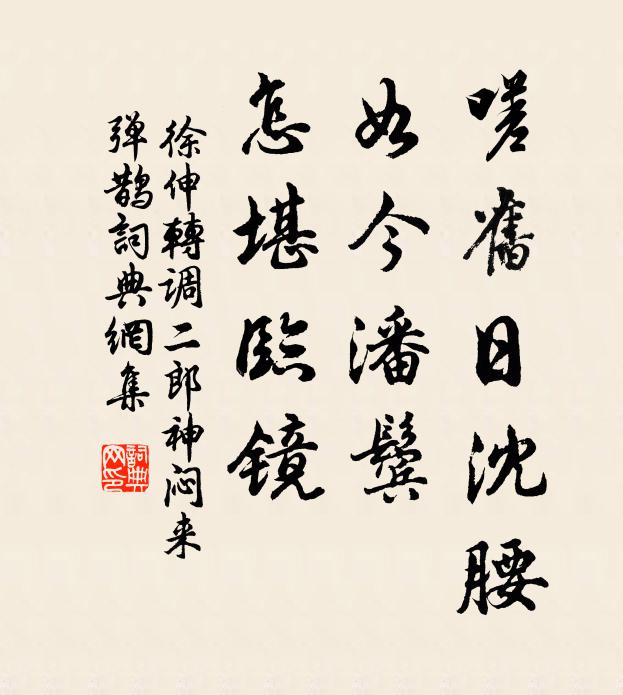 嗟舊日沈腰
如今潘鬓
怎堪臨鏡
徐伸轉调二郎神闷来
弹鹊詞典網集
詞典网印